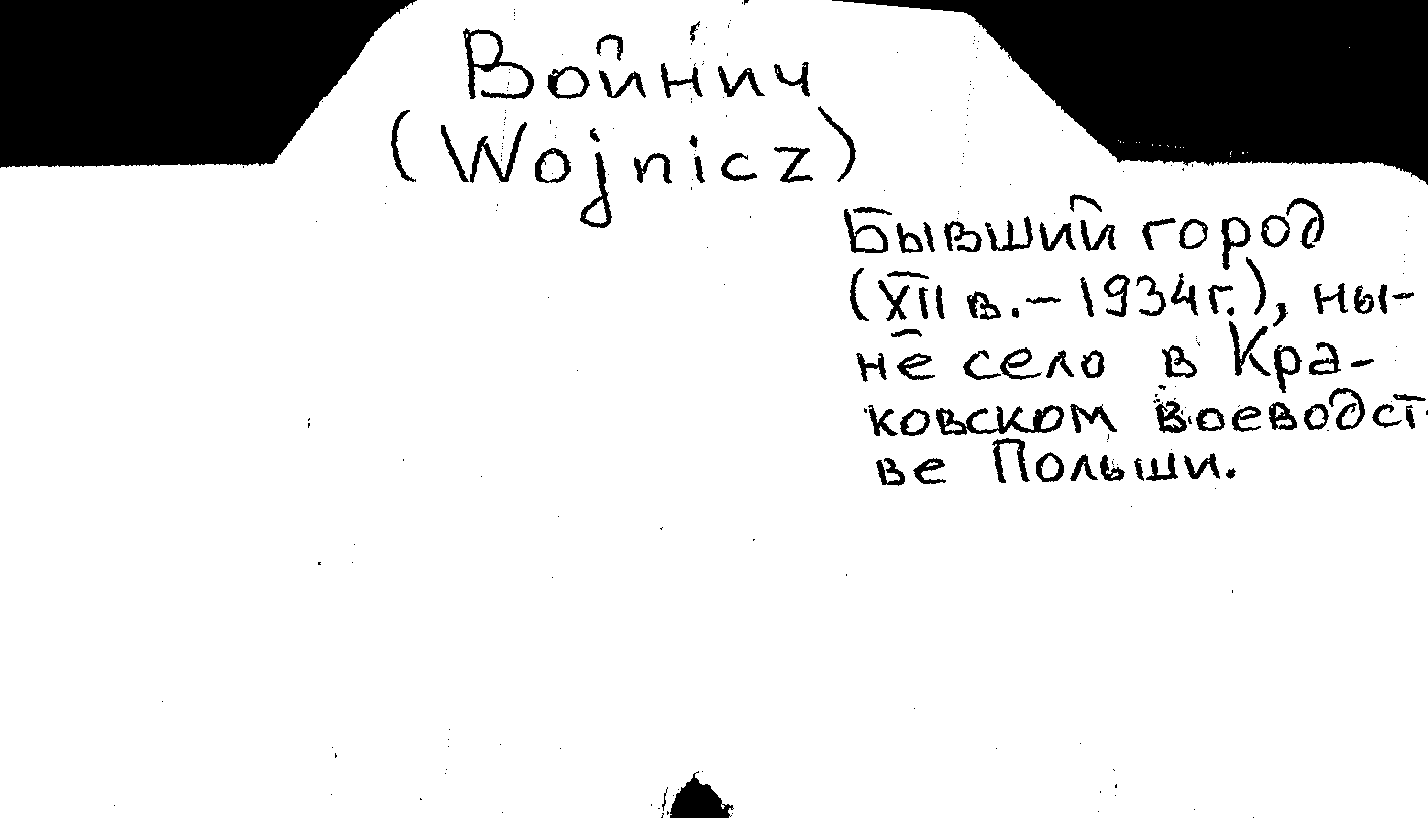 Войнич
(Wojnicz)
Бывший город
(XII в. – 1934 г.), ны-
не село в Кра-
ковском воеводст-
ве Польши.